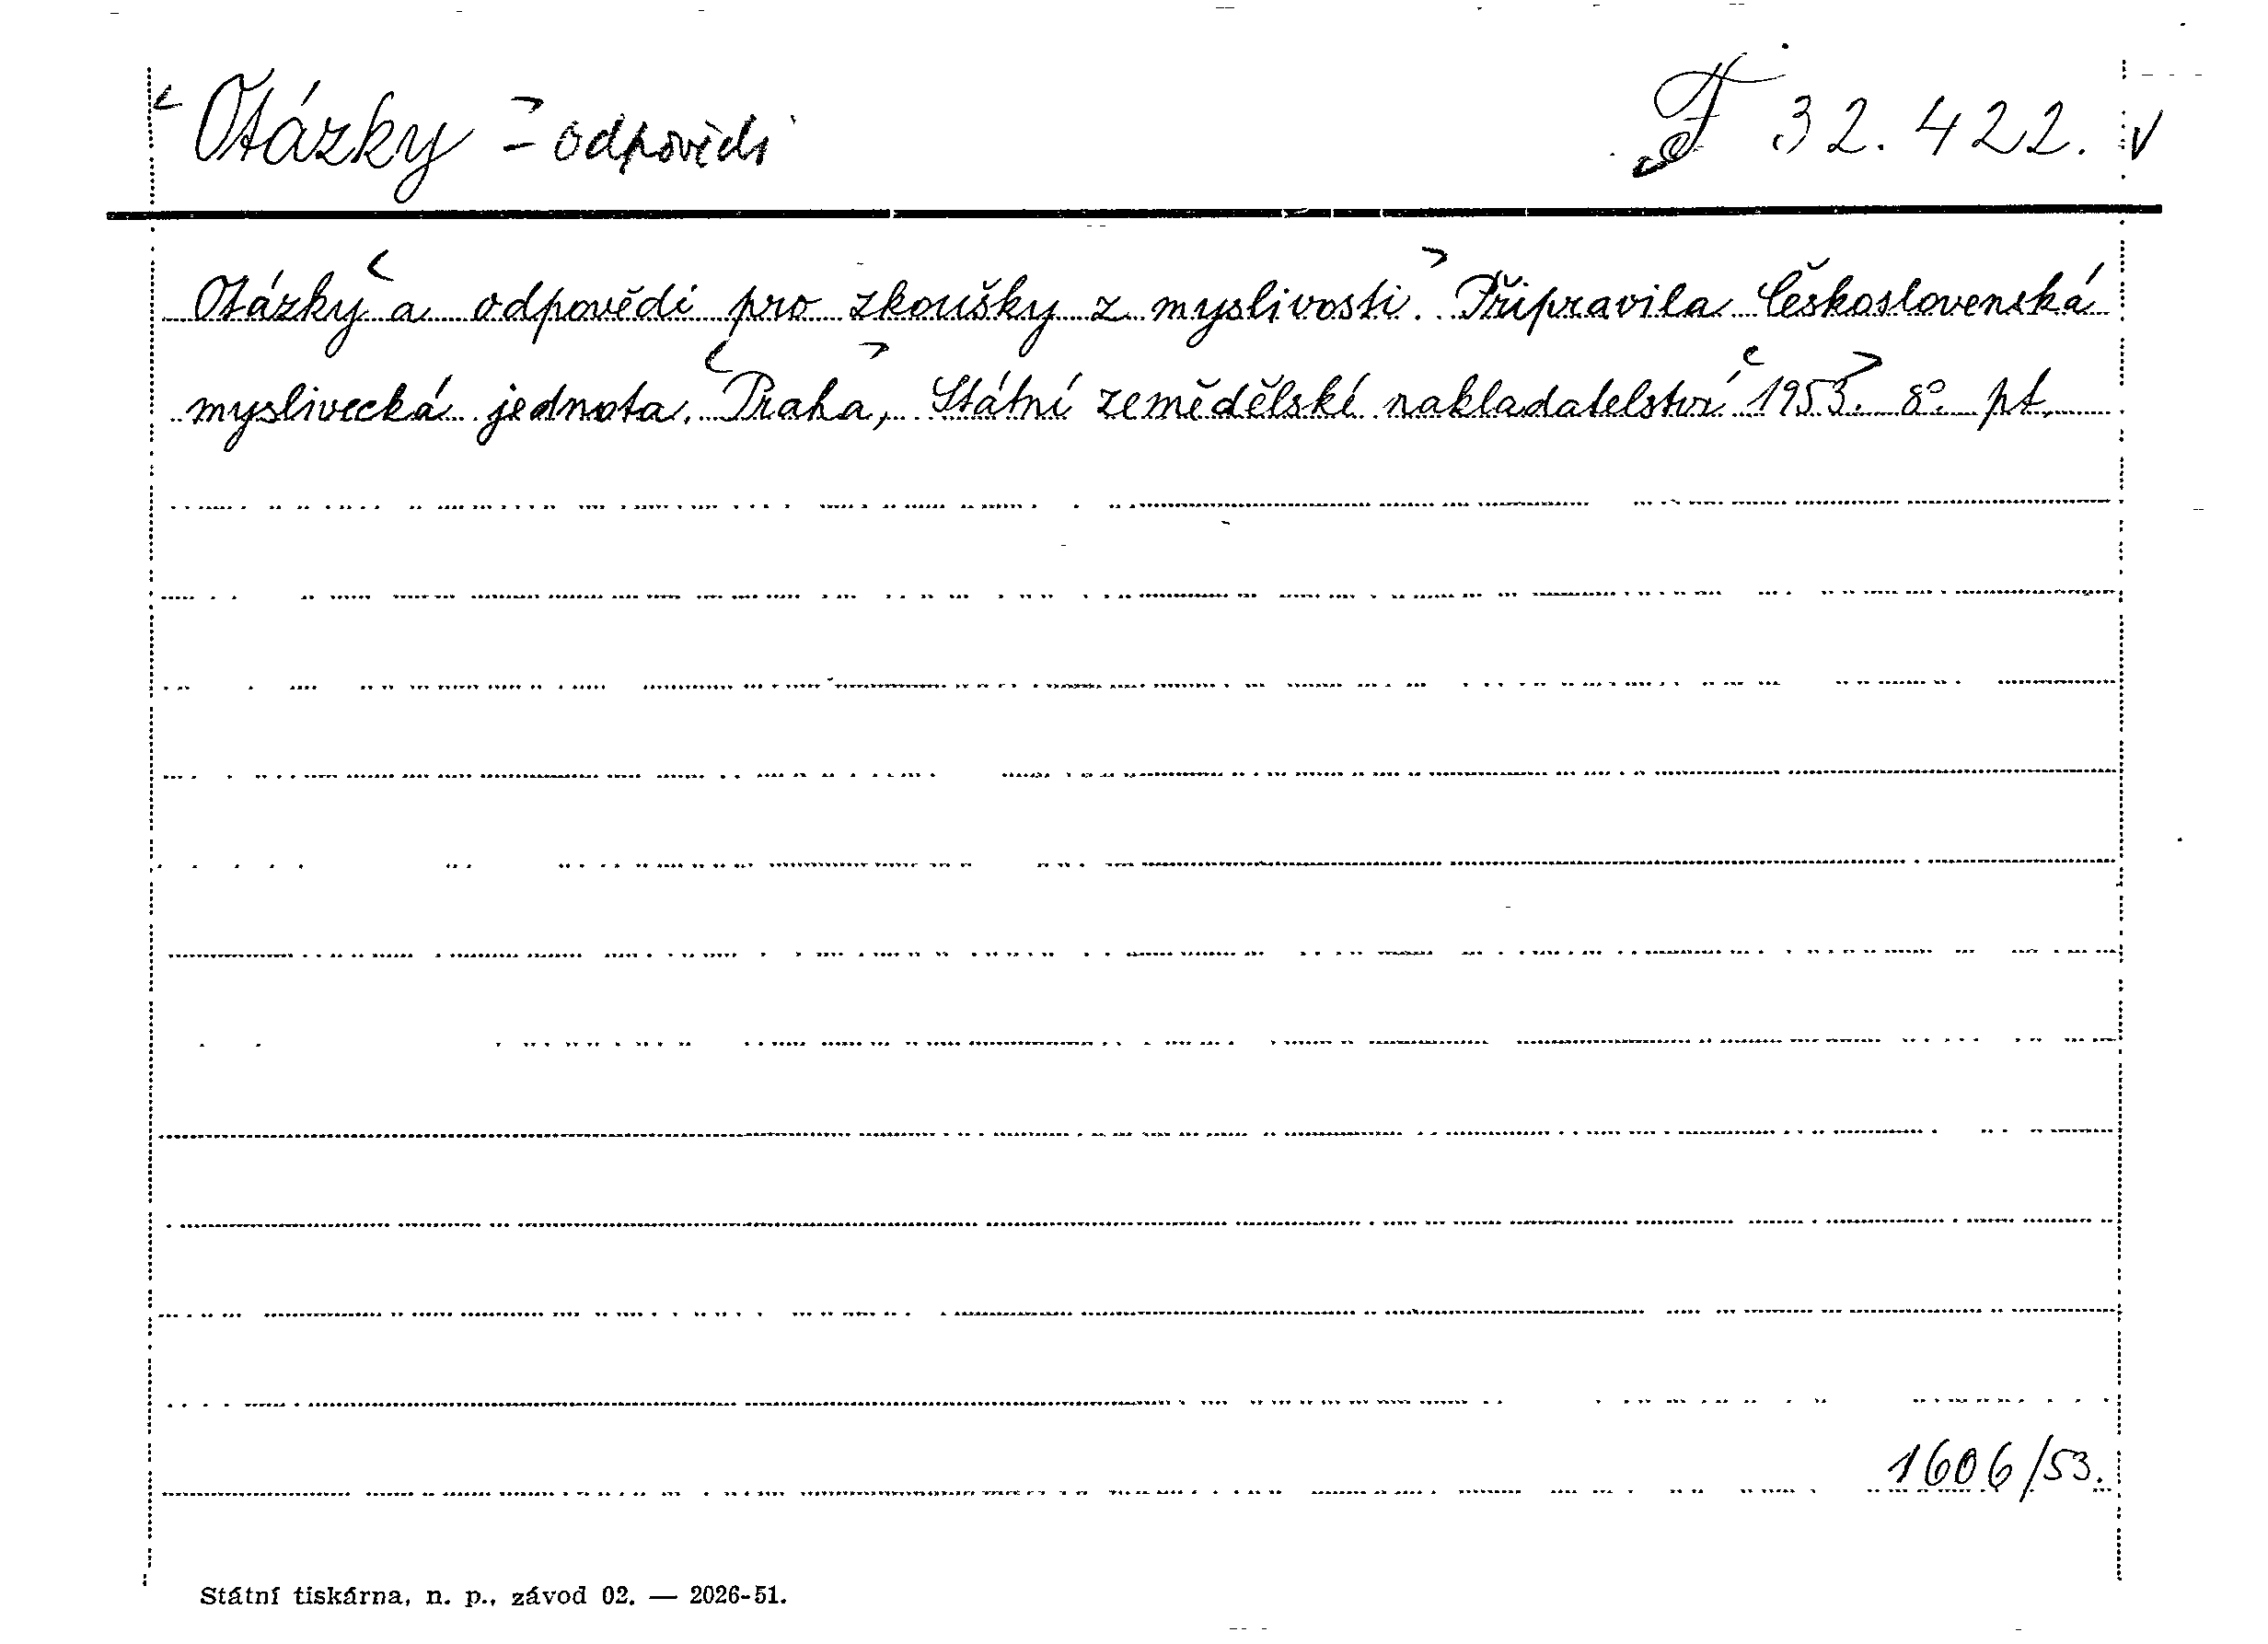 Otázky - odpovědi F 32.422. v
Otázky a odpovědi pro zkoušky z myslivosti. Připravila Československá
myslivecká jednota. Praha, Státní zemědělské nakladatelství 1953. 8°. pt.
1606/53.
Státní tiskárna, n. p., závod 02. — 2026-51.